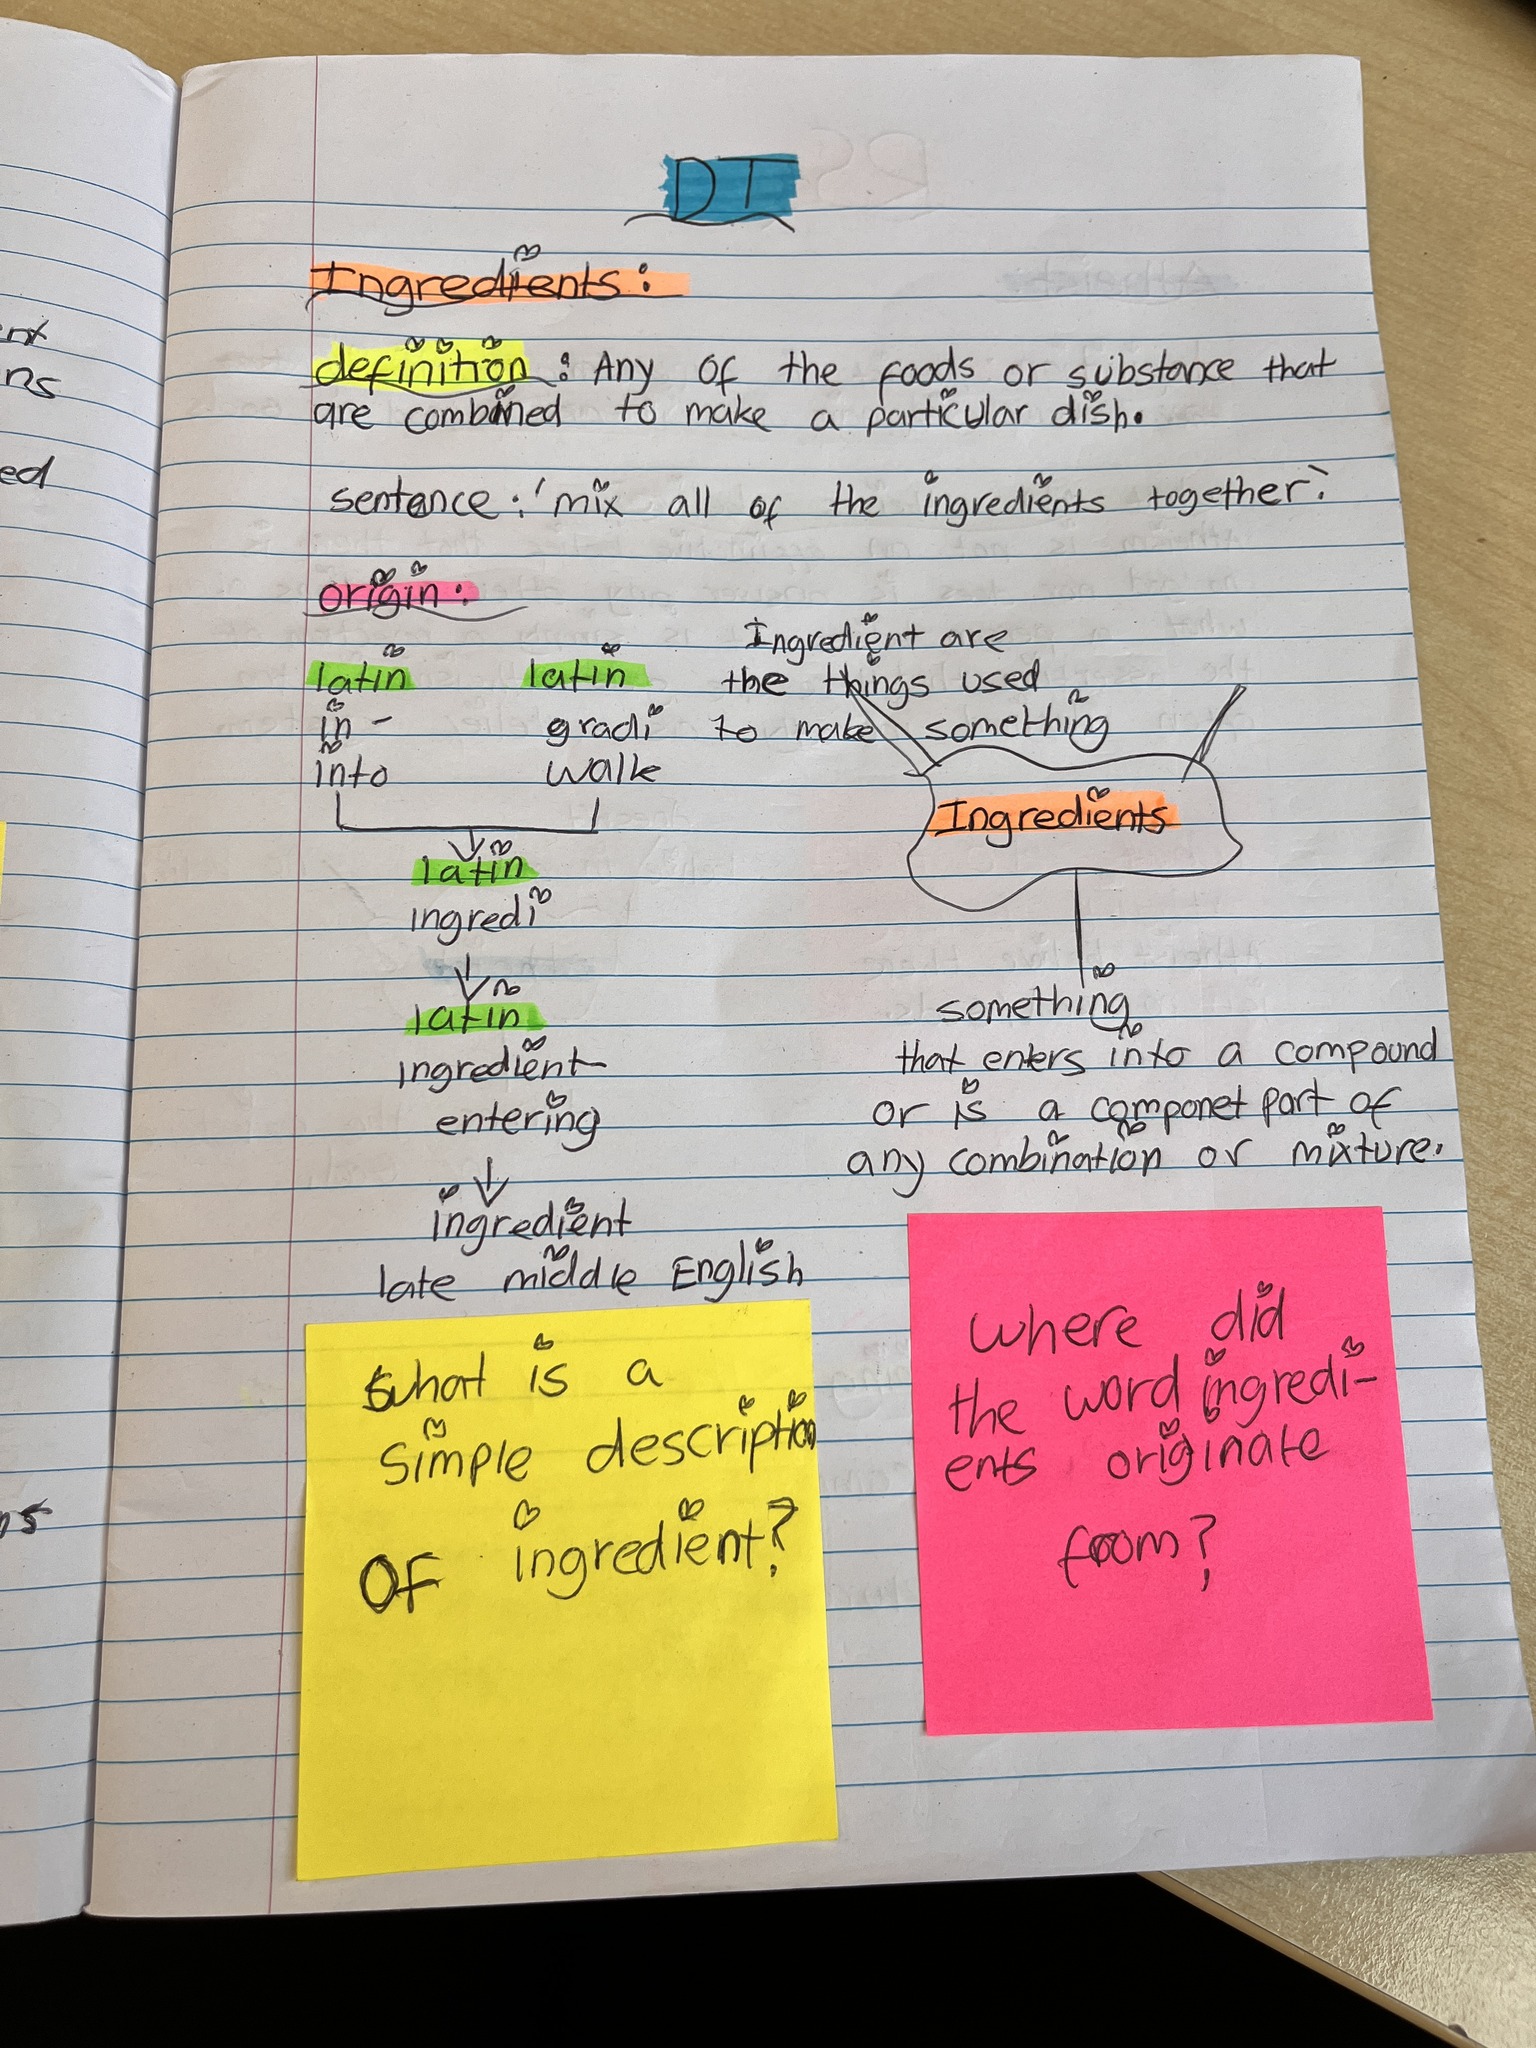 DT
Ingredients:
definition: Any of the foods or substance that
are combined to make a particular dish.
sentence: 'mix all of the ingredients together.'
origin:
latin
in -
into
latin
gradi
walk
latin
ingredi
latin
ingredient
entering
ingredient
late middle English
Ingredient are
the things used
to make something
Ingredients
something
that enters into a compound
or is a componet part of
any combination or mixture.
what is a
simple description
OF ingredient?
where did
the word ingredi-
ents originate
from?
ed